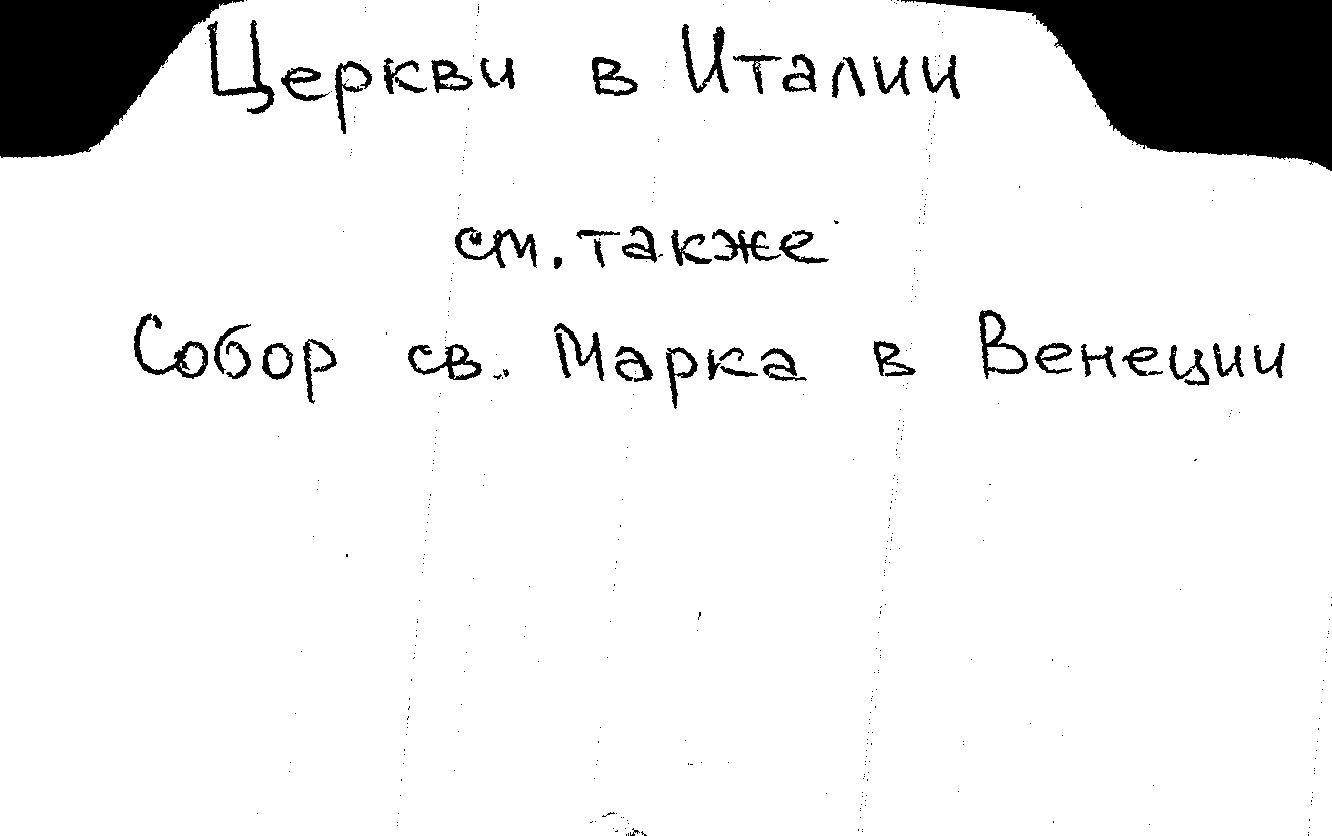 Церкви в Италии
см. также
Собор св. Марка в Венеции